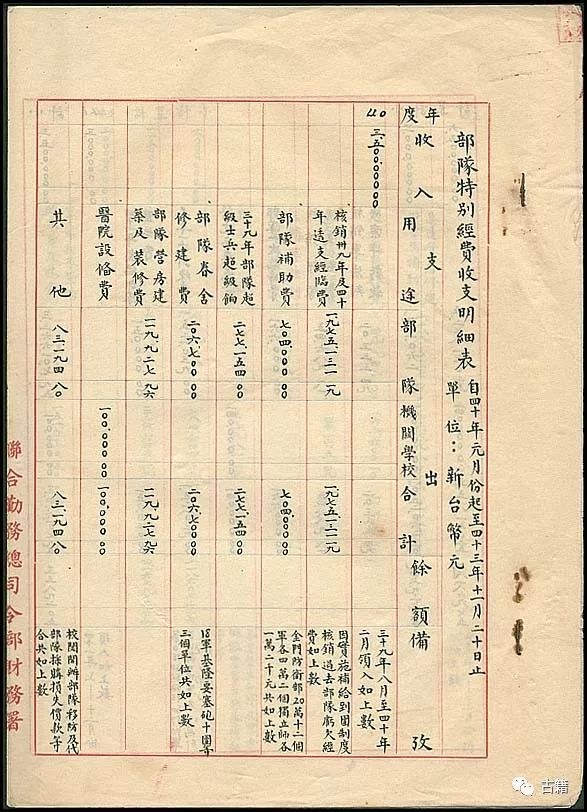 部隊特別經費收支明細表
自四十年元月份起至四十三年十一月二十日止
單位：新台幣元
年度
收入
支出
用途
部隊
機關學校
合計
餘額
備攷
40
三、五〇〇、〇〇〇〇〇
三十九年八月至四十年二月領入如上數
核銷卅九年及四十年透支經臨費
一、九七五、一三一一九
一、九七五、一三一一九
因實施補給到團制度核銷過去部隊虧欠經費如上數
部隊補助費
七〇四、〇〇〇〇〇
七〇四、〇〇〇〇〇
金門防衛部20萬十二個軍各四萬二個獨立師各一萬二千元共如上數
三十九年部隊超級士兵超級餉
二七七、一五四〇〇
二七七、一五四〇〇
部隊眷舍修建費
二〇六、七〇〇〇〇
二〇六、七〇〇〇〇
18軍基隆要塞砲十團等三個單位共如上數
部隊營房建築及裝修費
一、九九二七九六
一、九九二七九六
醫院設備費
一〇〇、〇〇〇〇〇
一〇〇、〇〇〇〇〇
其他
八三一九四八〇
八三一九四八〇
部隊採購損失償款等合共如上數
聯合勤務總司令部財務署
古籍